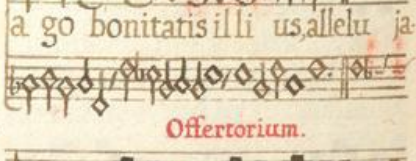 a go bonitatis illi us, allelu ja
Offertorium.